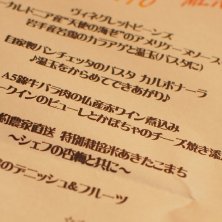 MEN
ヴィネグレットビーンズ
カレドニア産"天使の海老"のアメリケーヌソース
岩手産若鶏のカラアゲと温玉パスタに)
自家製パンチェッタのパスタ カルボナーラ
♪温玉をからめてできあがり♪
A5級牛バラ肉の仏産赤ワイン煮込み
クインのピューレとかぼちゃのチーズ焼き添
農家直送 特別栽培米あきたこまち
〜シェフの古梅と共に〜
のデニッシュ&フルーツ